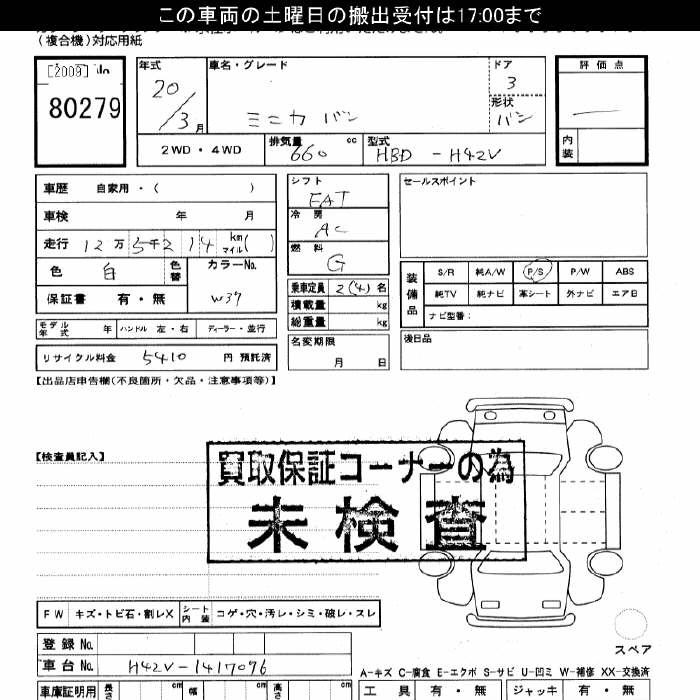 この車両の土曜日の搬出受付は17:00まで
(複合機)対応用紙
[2009]
80279
年式
20/3月
車名・グレード
ミニカ バン
ドア
3
形状
バン
評価点
内装
2WD・4WD
排気量 660 cc
型式 HBD-H42V
車歴 自家用・( )
車検 年 月
走行 12万5千214 km マイル( )
色 白 色替
カラーNo. W37
保証書 有・無
シフト FAT
冷房 AC
燃料 G
乗車定員 2(4)名
積載量 kg
総重量 kg
名変期限
月 日
セールスポイント
装備品
S/R 純A/W P/S P/W ABS
純TV 純ナビ 革シート 外ナビ エアB
ナビ型番:
後日品
モデル年式 年 ハンドル 左・右 ディーラー・並行
リサイクル料金 5410 円 預託済
【出品店申告欄(不良箇所・欠品・注意事項等)】
【検査員記入】
買取保証コーナーの為
未検査
FW キズ・トビ石・割レX シート内装 コゲ・穴・汚レ・シミ・破レ・スレ
スペア
登録No.
車台No. H42V-1417096
A-キズ C-腐食 E-エクボ S-サビ U-凹ミ W-補修 XX-交換済
車庫証明用 長さ cm 幅 cm 高さ cm
工具 有・無 ジャッキ 有・無